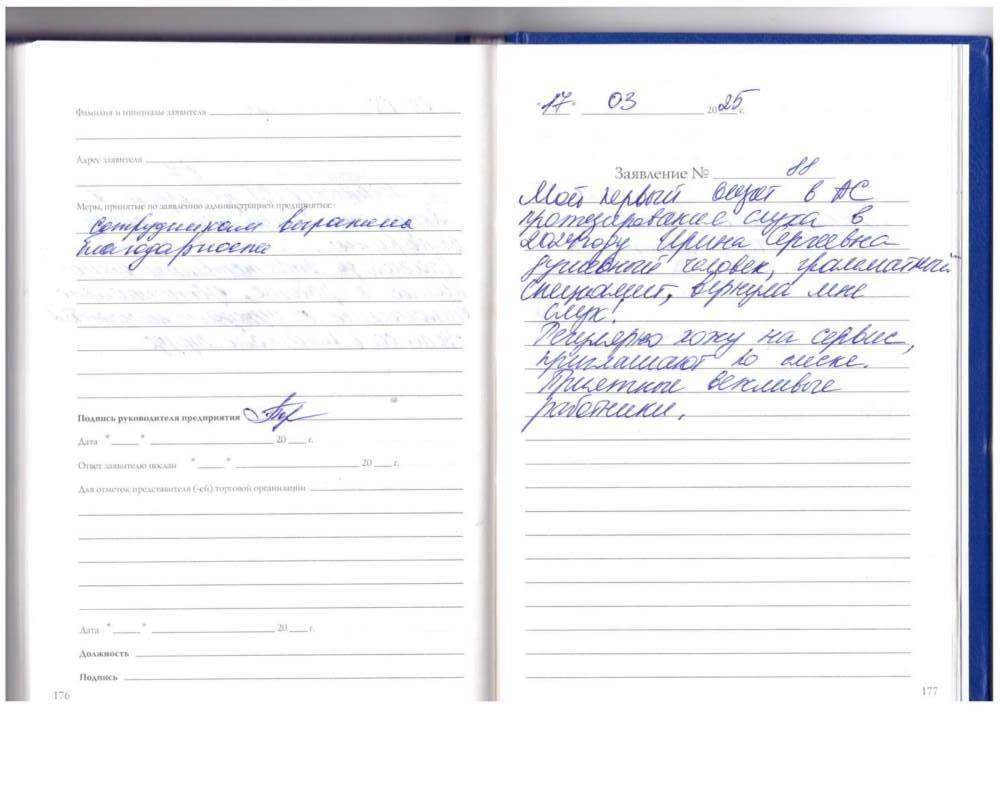 Фамилия и инициалы заявителя
Адрес заявителя
Меры, принятые по заявлению администрацией предприятия:
сотрудникам выражена
благодарность
Подпись руководителя предприятия
Дата " " 20 г.
Ответ заявителю послан " " 20 г.
Для отметок представителя (-ей) торговой организации
Дата " " 20 г.
Должность
Подпись
176
"17" 03 2025 г.
Заявление № 88
Мой первый визит в АС
протезирование слуха в
2024 году Ирина Сергеевна
душевный человек, грамматный
специалист, вернула мне
слух!
Регулярно хожу на сервис,
приглашают по смске.
Приятные вежливые
работники.
177